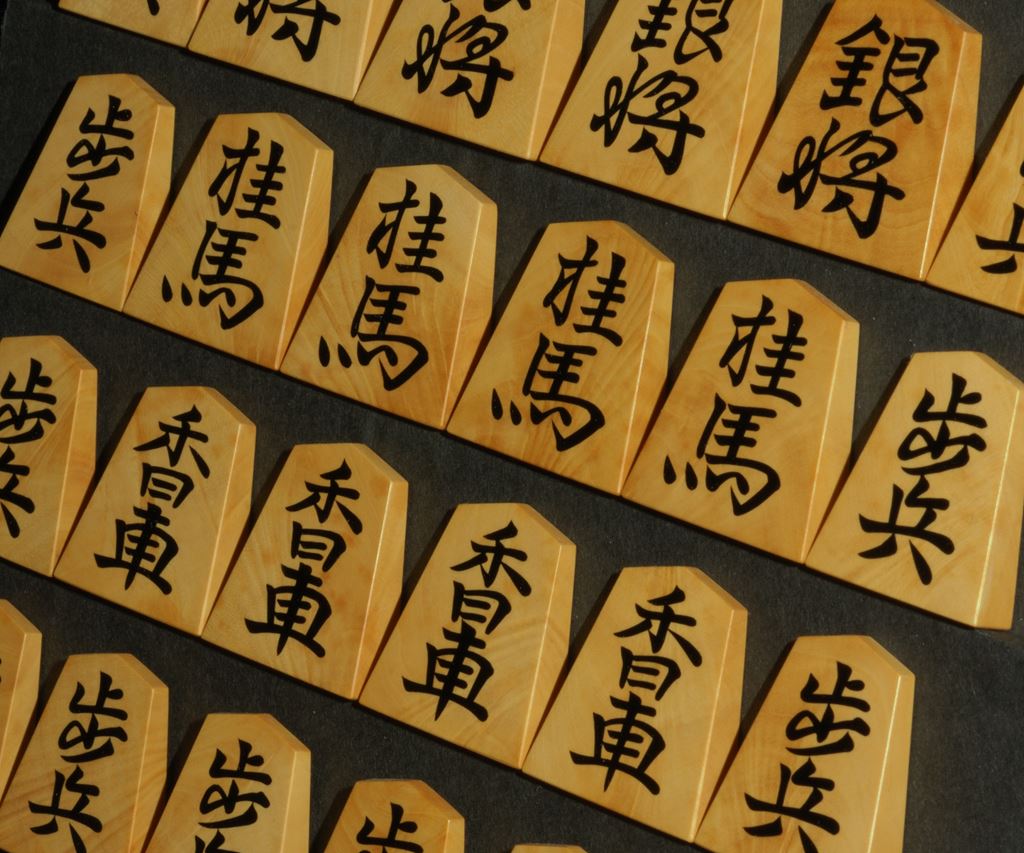 将
銀将
銀将
銀将
歩兵
桂馬
桂馬
桂馬
桂馬
歩兵
歩兵
香車
香車
香車
香車
歩兵
歩兵
歩兵
歩